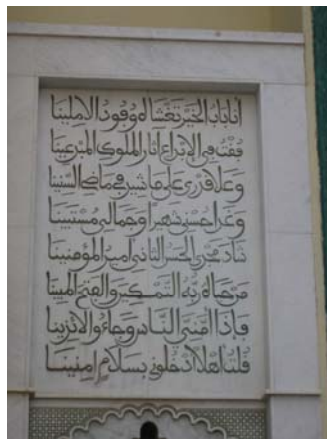 أنا باب الخير تغشاه وفود الآملينا
فقت في الإبداع آثار الملوك المبدعينا
وعلا قدري على ما شيد في ماضي السنينا
وغدا حسني شهيرا وجمالي مستبينا
شاد صرحي الحسن الثاني أمير المؤمنينا
ربه التمكين والفتح المبينا
فإذا أمني الناس وجاءوا
قلت أهلا ادخلوني بسلام آمنينا